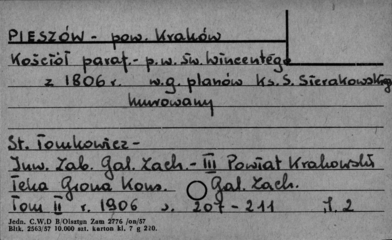 PIESZÓW - pow. Kraków
Kościół paraf. - p.w. św. Wincentego
z 1806 r. w.g. planów ks. S. Sierakowskiego
murowany
St. Tomkowicz -
Inw. Zab. Gal. Zach. - III Powiat Krakowski
Teka Grona Kons. Gal. Zach.
Tom II r. 1906 s. 207-211 f. 2
Jedn. C.W.D B/Olsztyn Zam 2776 /on/57
Bltk. 2563/57 10.000 szt. karton kl. 7 g 220.